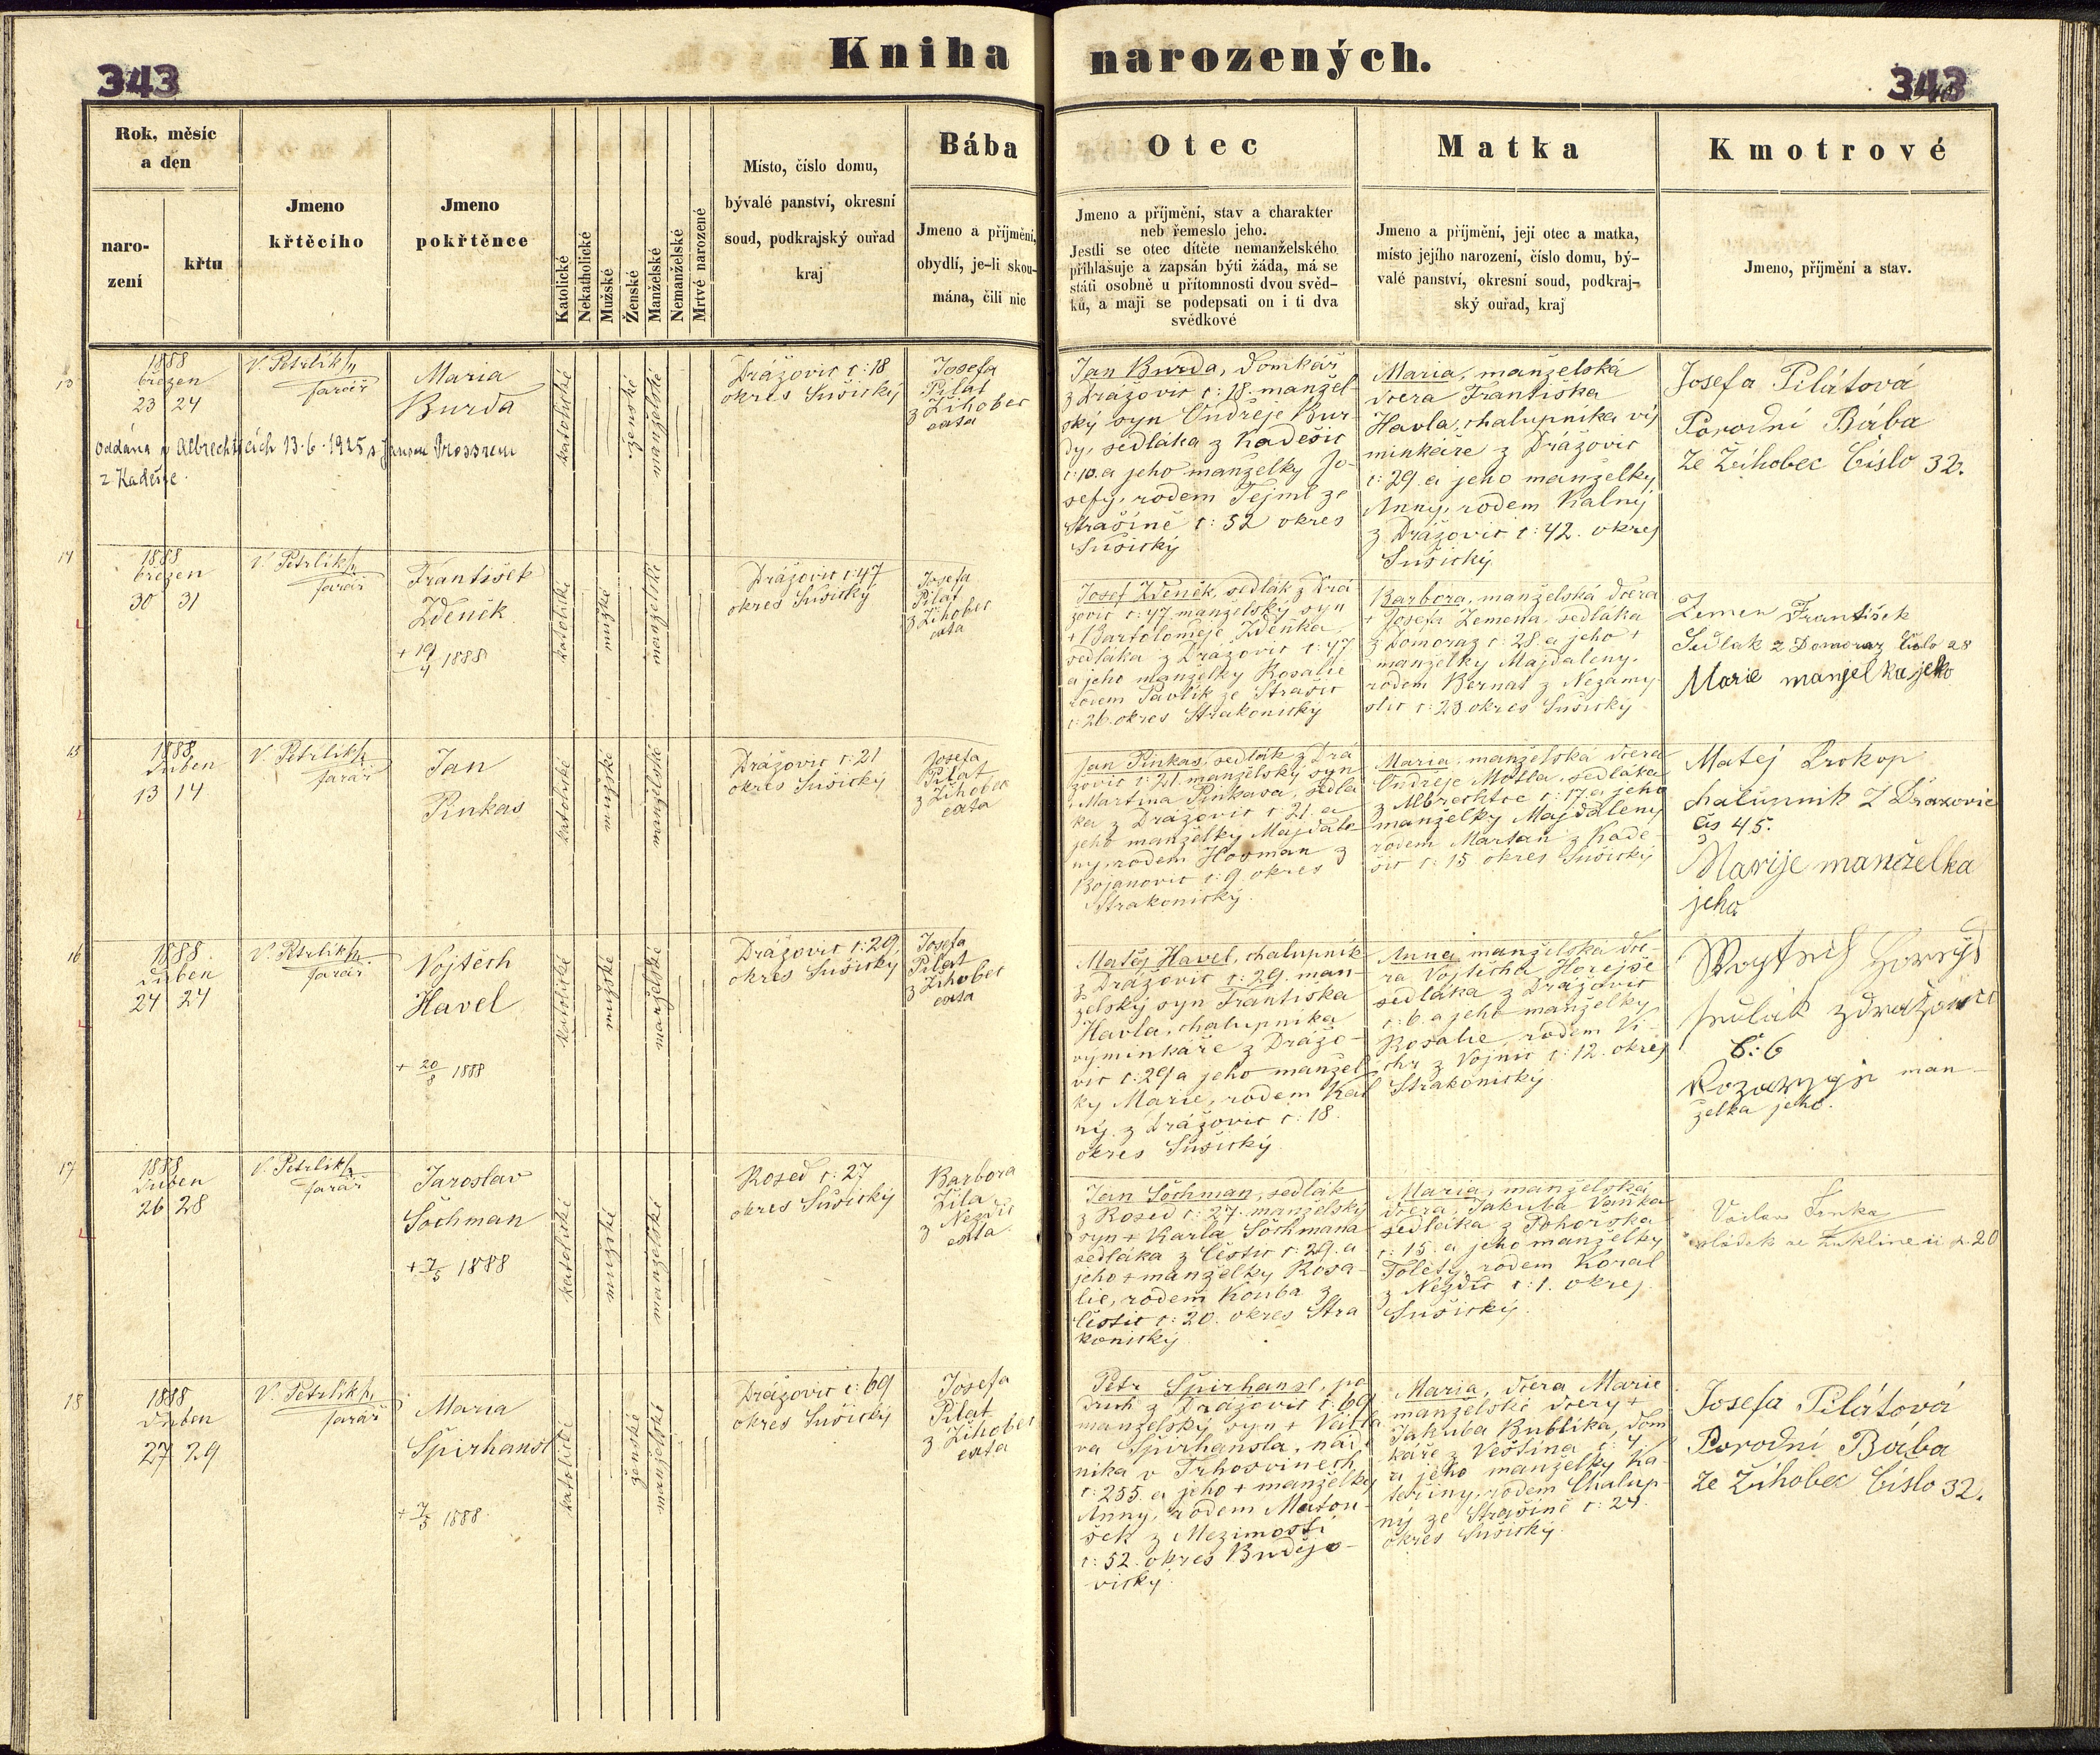 Kniha narozených.
343
343
Rok, měsíc
a den
naro-
zení
křtu
Jmeno
křtěcího
Jmeno
pokřtěnce
Katolické
Nekatholické
Mužské
Ženské
Manželské
Nemanželské
Mrtvě narozené
Místo, číslo domu,
bývalé panství, okresní
soud, podkrajský ouřad
kraj
Bába
Jmeno a příjmění,
obydlí, je-li skou-
mána, čili nic
Otec
Jmeno a příjmění, stav a charakter
neb řemeslo jeho.
Jestli se otec dítěte nemanželského
přihlašuje a zapsán býti žádá, má se
státi osobně u přítomnosti dvou svěd-
ků, a mají se podepsati on i ti dva
svědkové
Matka
Jmeno a příjmění, její otec a matka,
místo jejího narození, číslo domu, bý-
valé panství, okresní soud, podkraj-
ský ouřad, kraj
Kmotrové
Jmeno, příjmění a stav.
13
1888
březen
23 24
V. Petrlík
farář
Maria
Burda
oddána v Albrechticích 13.6.1925 s Janem
z Kadešic.
katolické
ženské
manželské
Drážovic č: 18
okres Sušický
Josefa
Pilát
z Žihobec
exta
Jan Burda, domkář
z Drážovic č: 18. manžel
ský syn Ondřeje Bur-
dy, sedláka z Kadešic
č: 10. a jeho manželky Jo-
sefy, rodem Tejml ze
Strašíně č: 52 okres
Sušický
Maria, manželská
dcera Františka
Havla, chalupníka vý
minkáře z Drážovic
č: 29. a jeho manželky
Anny, rodem Kalný
z Drážovic č: 42. okres
Sušický
Josefa Pilátová
Porodní Bába
Ze Žihobec Číslo 32.
14
1888
březen
30 31
V. Petrlík
farář
František
Zdeněk
+ 19/4 1888
katolické
mužské
manželské
Drážovic č: 47
okres Sušický
Josefa
Pilát
z Žihobec
exta
Josef Zdeněk, sedlák z Drá
žovic č: 47. manželský syn
+ Bartoloměje Zdeňka
sedláka z Drážovic č: 47
a jeho manželky Rosalie
rodem Pavlík ze Strašic
č: 26. okres Strakonický
Barbora, manželská dcera
+ Josefa Zemena, sedláka
z Domoraz č: 28. a jeho +
manželky Majdaleny,
rodem Bernat z Nezamy-
slic č: 23. okres Sušický
Zemen František
Sedlak z Domoraz číslo 28
Marie manželka jeho
15
1888
duben
13 14
V. Petrlík
farář
Jan
Pinkas
katolické
mužské
manželské
Drážovic č: 21
okres Sušický
Josefa
Pilat
z Žihobec
exta
Jan Pinkas, sedlák z Drá
žovic č: 21. manželský syn
Martina Pinkasa, sedlá
ka z Drážovic č: 21. a
jeho manželky Majdale
ny, rodem Hosman z
Bojanovic č: 9. okres
Strakonický.
Maria, manželská dcera
Ondřeje Motla, sedláka
z Albrechtic č: 17. a jeho
manželky Majdaleny
rodem Martan z Kade-
šic č: 15 okres Sušický
Matej Prokop
chalupnik Z Dražovic
čis 45.
Marije manželka
jeho
16
1888.
duben
24 24
V. Petrlík
farář
Vojtěch
Havel
+ 20/8 1888
katolické
mužské
manželské
Drážovic č: 29.
okres Sušický
Josefa
Pilat
z Žihobec
exta
Matěj Havel, chalupník
z Drážovic č: 29. man-
želský syn Františka
Havla, chalupníka
výminkáře z Drážo-
vic č: 29 a jeho manžel-
ky Marie, rodem Kal
ný z Drážovic č: 18.
okres Sušický
Anna, manželská dce-
ra Vojtěcha Horejše
sedláka z Drážovic
č: 6. a jeho manželky
Rosalie, rodem Vi-
chr z Vojnic č: 12. okres
Strakonický
č: 6
man-
želka jeho.
17
1888
duben
26 28
V. Petrlík
farář
Jaroslav
Šochman
+ 7/5 1888
katolické
mužské
manželské
Rosed č: 27
okres Sušický
Barbora
Žila
z Nezdic
exta
Jan Šochman, sedlák
z Rosed č: 27. manželský
syn + Karla Šochmana
sedláka z Čestic č: 29. a
jeho + manželky Rosa-
lie, rodem Kouba z
Čestic č: 20. okres Stra
konický
Maria, manželská
dcera Jakuba Vaňka
sedláka z Pohorska
č: 15. a jeho manželky
rodem Koral
z Nezdic č: 1. okres
Sušický.
Václav
18
1888
duben
27 29
V. Petrlík
farář
Maria
Špirhansl
+ 7/5 1888
katolické
ženské
manželské
Drážovic č: 69
okres Sušický
Josefa
Pilat
z Žihobec
exta
Petr Špirhansl, po
druh z Drážovic č: 69
manželský syn + Václa
va Špirhansla, nád.
níka v Trhosvinech
č: 255. a jeho + manželky
Anny, rodem Matou-
šek z Mezimostí
č: 52. okres Budějo-
vický.
Maria, dcera Marie
manželské dcery +
Jakuba Bublíka, dom
káře z Veštína č: 4
a jeho manželky Ka-
teřiny, rodem Chalup-
ný ze Strašíně č: 24.
okres Sušický
Josefa Pilátová
Porodní Bába
Ze Žihobec Číslo 32.